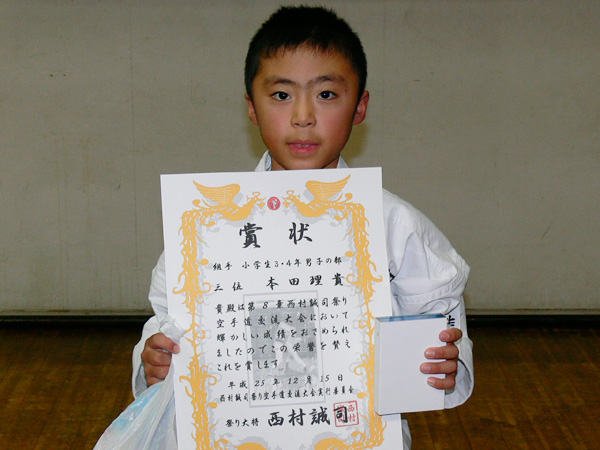 賞状
組手 小学生3・4年男子の部
三位 本田理貴
貴殿は第8章西村誠司祭り
空手道交流大会において
輝かしい成績をおさめられ
ましたのでこの栄誉を讃え
これを賞します
平成25年12月15日
西村誠司祭り空手道交流大会実行委員会
祭り大将 西村誠司